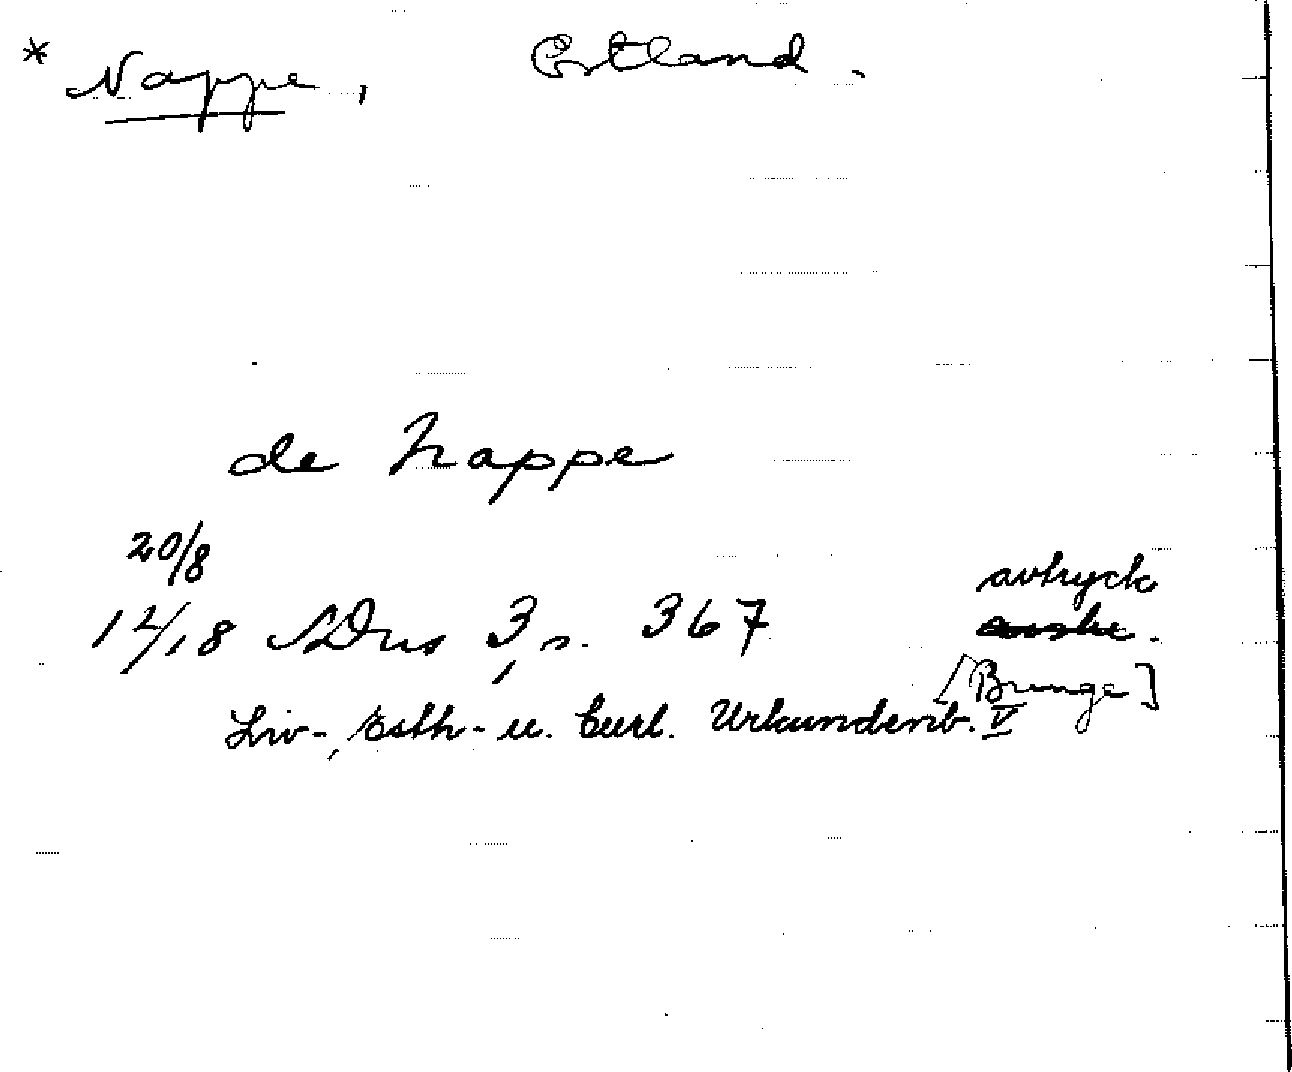 * Nappe, Estland.
de Nappe
20/8
1218 SDns 3, s. 367 avtryck
[Bunge]
Liv-, Esth- u. Curl. Urkundenb. V